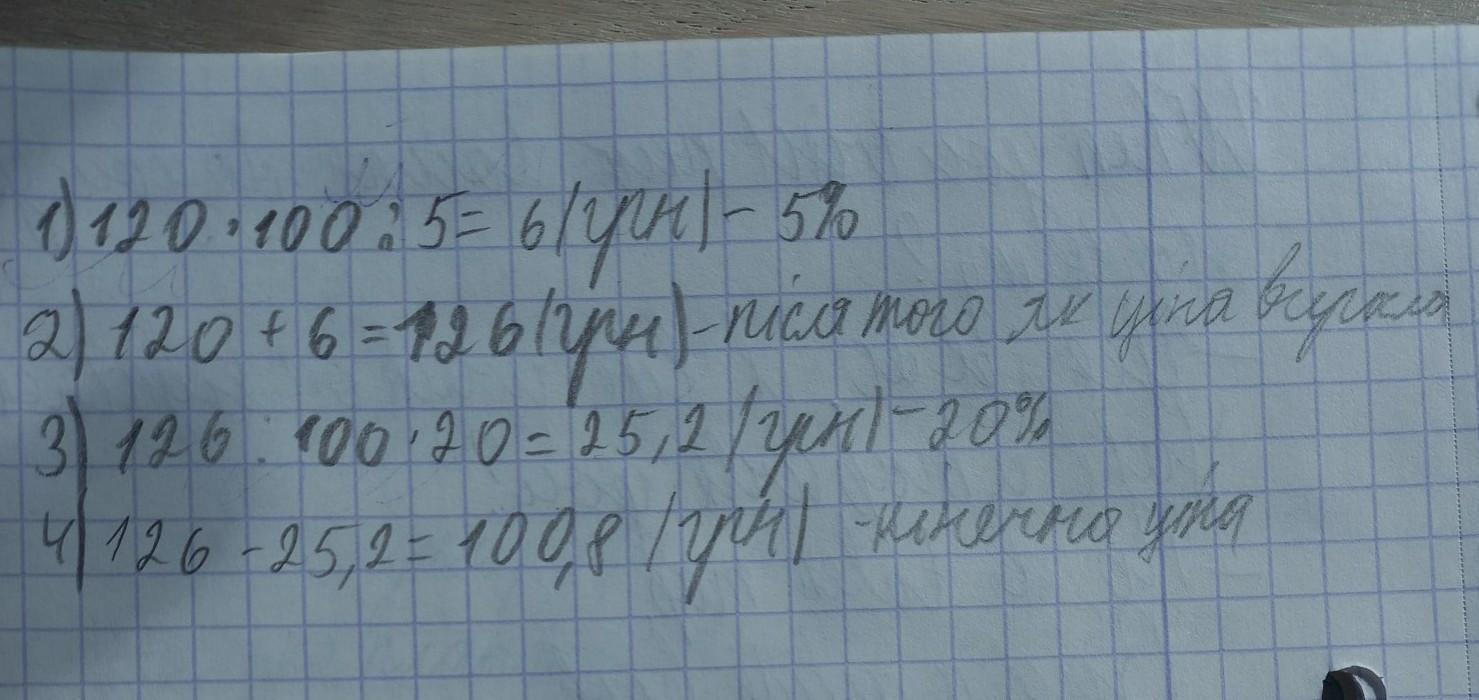 1) 120 · 100 : 5 = 6 (грн) - 5%
2) 120 + 6 = 126 (грн) - після того як ціна
3) 126 : 100 · 20 = 25,2 (грн) - 20%
4) 126 - 25,2 = 100,8 (грн) - кінечна ціна